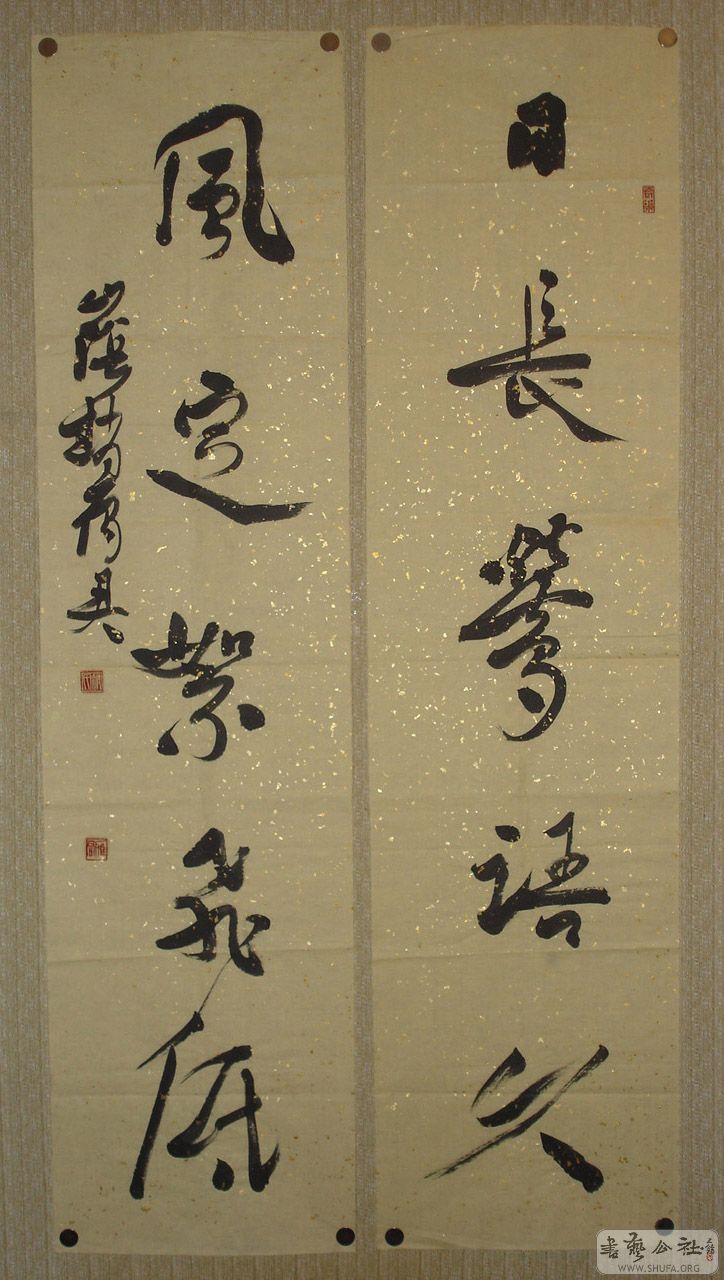 日長鶯語久
風定絮飛低
書藝公社
WWW.SHUFA.ORG